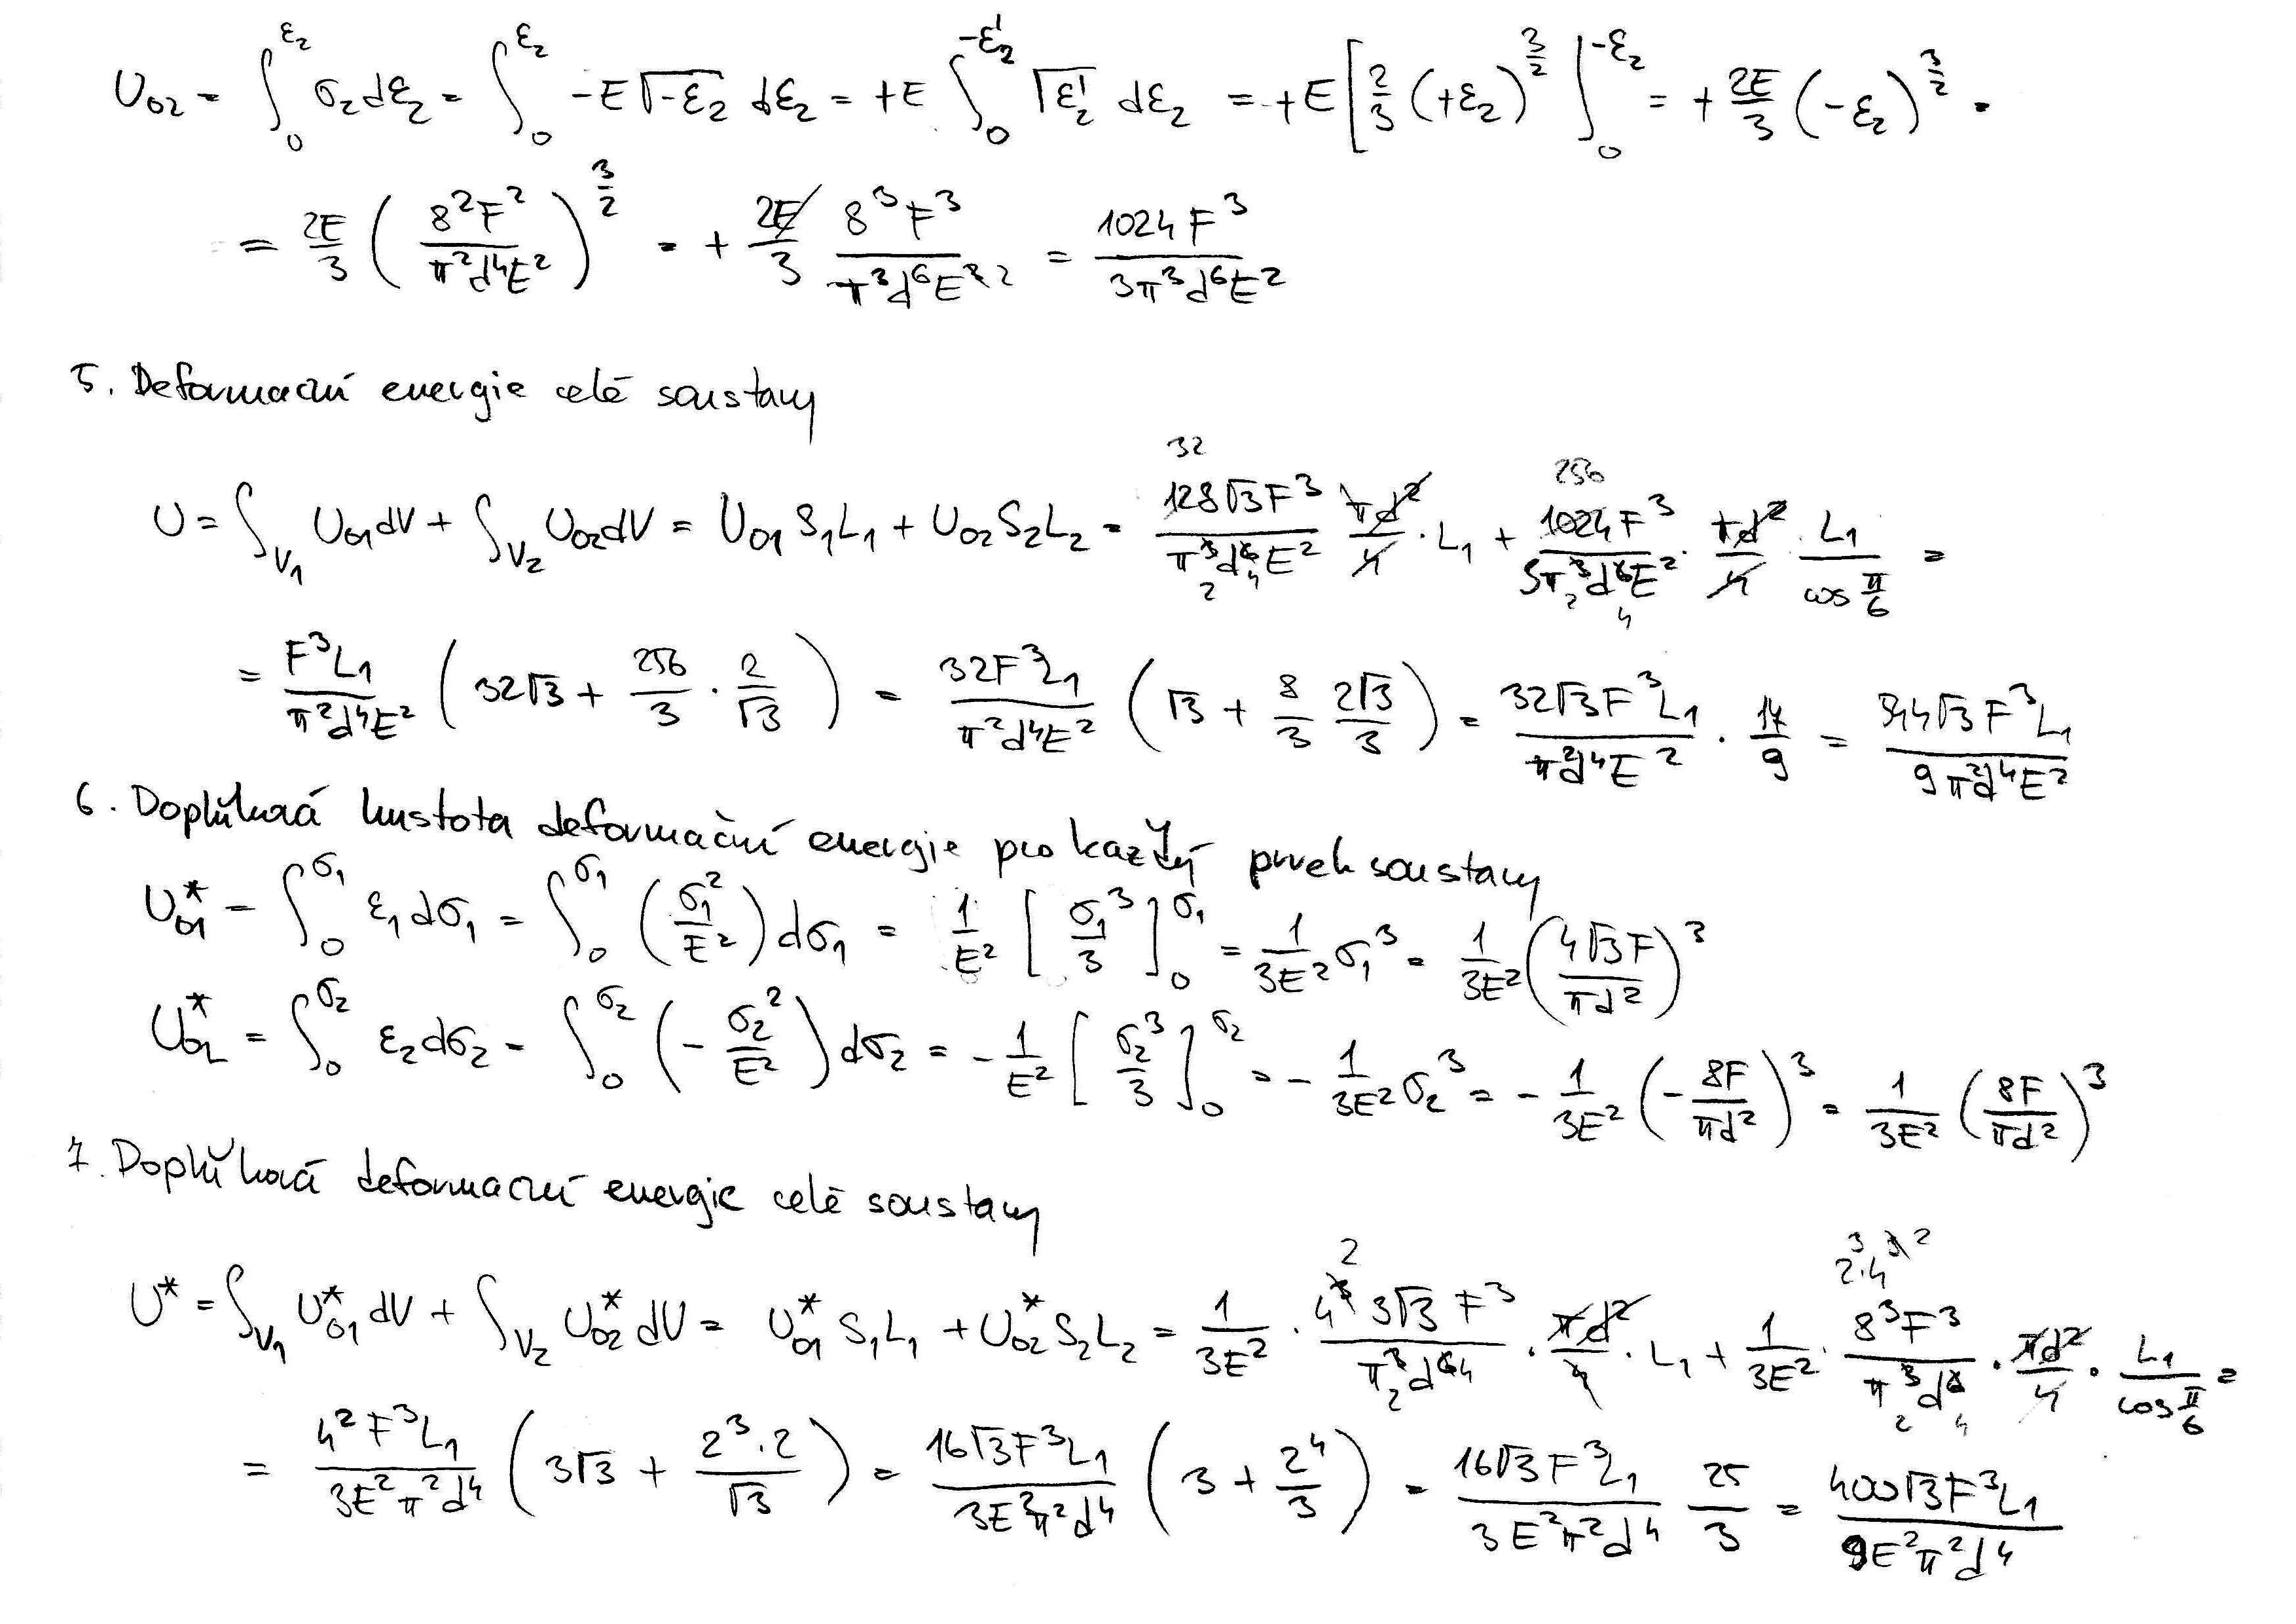 U₀₂ = ∫₀^ε₂ σ₂dε₂ = ∫₀^ε₂ -E√(-ε₂) dε₂ = +E ∫₀^-ε₂' √(ε₂') dε₂ = +E [2/3 (+ε₂)^(3/2)]₀^-ε₂ = + 2E/3 (-ε₂)^(3/2) =
= 2E/3 (8²F²/(π²d⁴E²))^(3/2) = + 2E/3 8³F³/(π³d⁶E²) = 1024F³/(3π³d⁶E²)
5. Deformační energie celé soustavy
U = ∫_V₁ U₀₁dV + ∫_V₂ U₀₂dV = U₀₁S₁L₁ + U₀₂S₂L₂ = 128√3F³/(π³d⁶E²) πd²/4 · L₁ + 1024F³/(3π³d⁶E²) · πd²/4 · L₁/(cos π/6) =
= F³L₁/(π²d⁴E²) (32√3 + 256/3 · 2/√3) = 32F³L₁/(π²d⁴E²) (√3 + 8/3 2√3/3) = 32√3F³L₁/(π²d⁴E²) · 17/9 = 544√3F³L₁/(9π²d⁴E²)
6. Doplňková hustota deformační energie pro každý prvek soustavy
U₀₁* = ∫₀^σ₁ ε₁dσ₁ = ∫₀^σ₁ (σ₁²/E²)dσ₁ = 1/E² [σ₁³/3]₀^σ₁ = 1/(3E²) σ₁³ = 1/(3E²) (4√3F/(πd²))³
U₀₂* = ∫₀^σ₂ ε₂dσ₂ = ∫₀^σ₂ (-σ₂²/E²)dσ₂ = -1/E² [σ₂³/3]₀^σ₂ = -1/(3E²) σ₂³ = -1/(3E²) (-8F/(πd²))³ = 1/(3E²) (8F/(πd²))³
7. Doplňková deformační energie celé soustavy
U* = ∫_V₁ U₀₁* dV + ∫_V₂ U₀₂* dV = U₀₁* S₁L₁ + U₀₂* S₂L₂ = 1/(3E²) · 4³3√3F³/(π³d⁶) · πd²/4 · L₁ + 1/(3E²) · 8³F³/(π³d⁶) · πd²/4 · L₁/(cos π/6) =
= 4²F³L₁/(3E²π²d⁴) (3√3 + 2³·2/√3) = 16√3F³L₁/(3E²π²d⁴) (3 + 2⁴/3) = 16√3F³L₁/(3E²π²d⁴) 25/3 = 400√3F³L₁/(9E²π²d⁴)